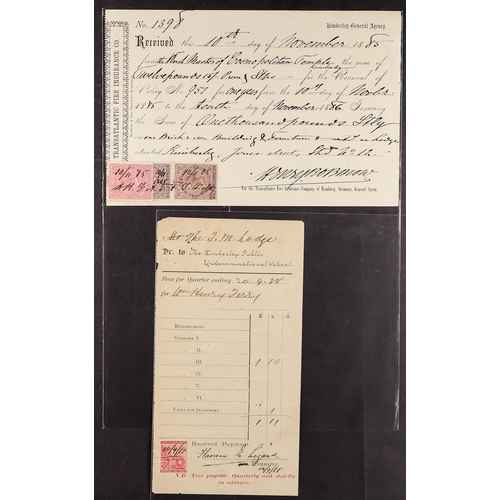 No. 1398 Kimberley General Agency.
Received this 10th day of November 1885
from the Worsh Master of Cosmopolitan Temple the sum of
Kimberley
Twelve pounds 10/ Prem & Stps for the Renewal of
Policy No 951 for one year from the 10th day of Novber
1885 to the tenth day of November 1886 Insuring
the Sum of One thousand pounds Stg
on one Brick & iron Building & Furniture
situated Kimberley, Jones Street,
TRANSATLANTIC FIRE INSURANCE CO.
10/11 85 10/11 85
For the Transatlantic Fire Insurance Company of Hamburg, Germany, General Agent.
Mr The I. M. Lodge
Dr. to The Kimberley Public
Undenominational School
Fees for Quarter ending 30-9-88
for Wm Henry Terry
£ s. d.
KINDERGARTEN
STANDARD I.
" II.
" III. 1 10
" IV.
" V.
" VI.
EXTRA FOR STATIONERY 1
1 11
Received Payment
14/9/88
Treasurer.
N.B.—Fees payable Quarterly and strictly
in advance.